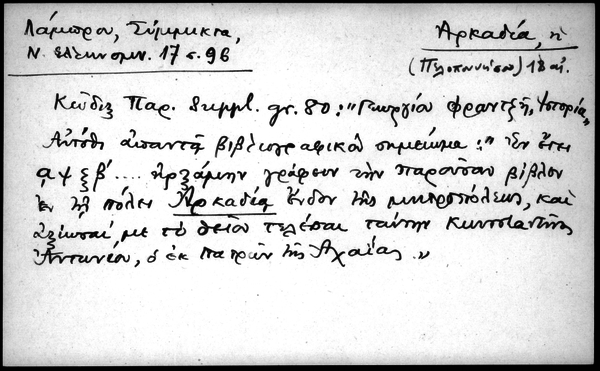 Λάμπρου, Σύμμικτα,
Ν. Ελληνομν. 17 σ. 96
Ἀρκαδία, ἡ
(Πελοποννήσου) 18 αἰ.
Κῶδιξ Παρ. Suppl. gr. 80: "Γεωργίου Φραντζῆ, Ἱστορία"
Αὐτόθι ἀπαντᾷ βιβλιογραφικὸν σημείωμα: "Ἐν ἔτει
αψξβ´.... ἠρξάμην γράφειν τὴν παροῦσαν βίβλον
ἐν τῇ πόλει Ἀρκαδίᾳ ἔνδον τῆς μητροπόλεως, καὶ
ἀξίωσαί με τὸ θεῖον τελέσαι ταύτην Κωνσταντῖνος
Ἀντωνίου, ὁ ἐκ Πατρῶν τῆς Ἀχαΐας."